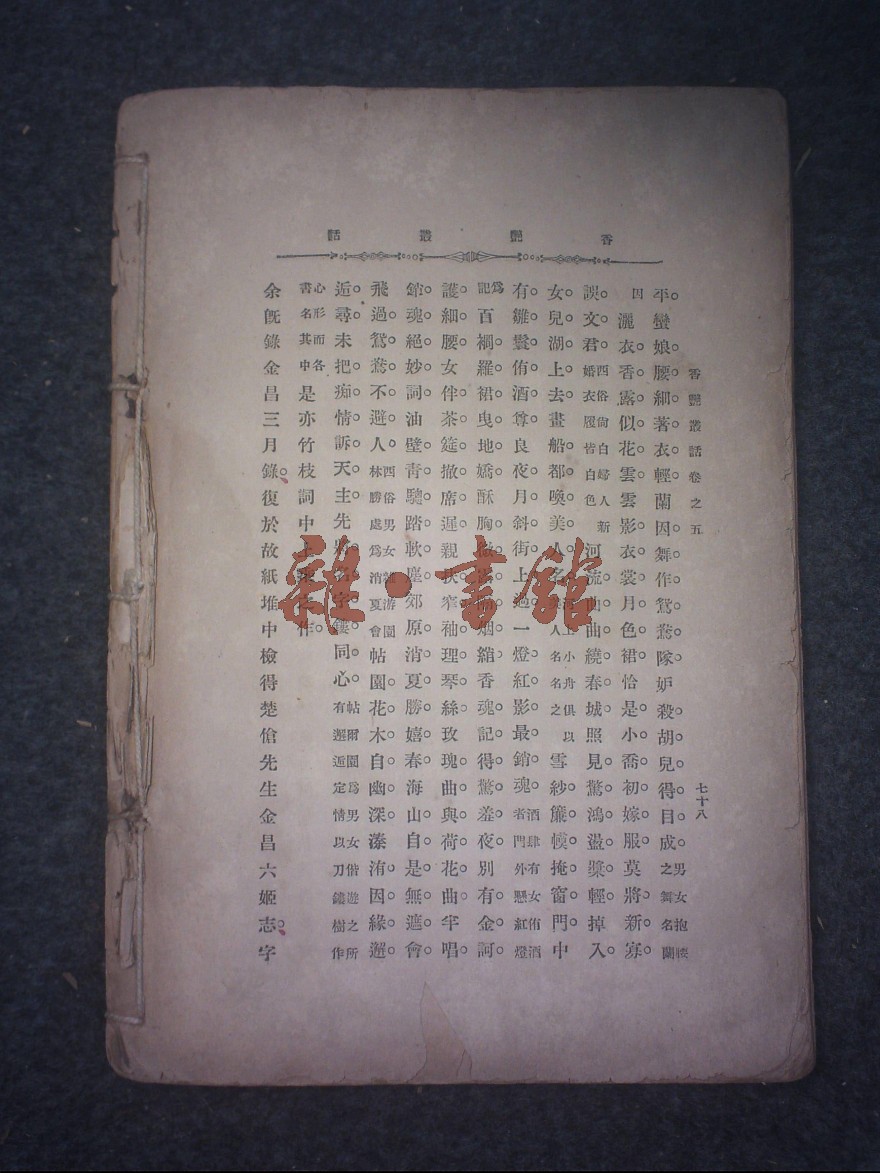 香艷叢話
香艷叢話卷之五
七十八
平。蠻娘。腰細。著衣輕蘭因。舞作鴛鴦隊。妒殺。胡兒。得。目成。男女抱腰之舞名蘭
因灑衣。香。露。似。花。雲雲影。衣裳月色。裙。恰是。小喬。初嫁服。莫將。新。寡。
誤。文。君。西俗尚白婦人新婚衣履皆白色河流曲曲。繞。春。城。照見。驚。鴻。盪。槳。輕。掉入
女。兒。湖。上。去。畫船。都。喚。美。人。名。河上小舟俱以美人名名之雪紗。簾。幙。掩。窗。門。中
有。雛。鬟。侑。酒。尊。良夜。月。斜。街上。過一燈。紅。影。最。銷。魂。酒肆有女侑酒者門外懸紅燈
爲記百襇。羅。裙。曳。地。嬌。酥胸烟綃。香魂。記得。驚。羞。夜。別有。金。訶。
護。細。腰。女伴。茶。筵。撤席。遲。親窄。袖。理琴。絲。玫瑰。曲。與。荷。花。曲。半唱。
銷。魂。絕。妙。詞。油壁。青。驄。踏。軟塵。郊。原。消夏。勝。嬉。春。海山。自。是。無。遮。會。
飛過。鴛。鴦。不避。人。西俗男女雜游園林勝處爲消夏會帖園。花。木。自。幽。深。溱洧。因。緣。邂。
逅。尋。未把。痴。情。訴天。主。先名字。鏤同。心。帖爾園爲男女偕遊之所有邂逅定情以刀鐫樹作
心形而各書名其中是亦竹枝詞中上乘之作。
余既錄金昌三月錄。復於故紙堆中檢得楚傖先生金昌六姬志。字
雜·書館